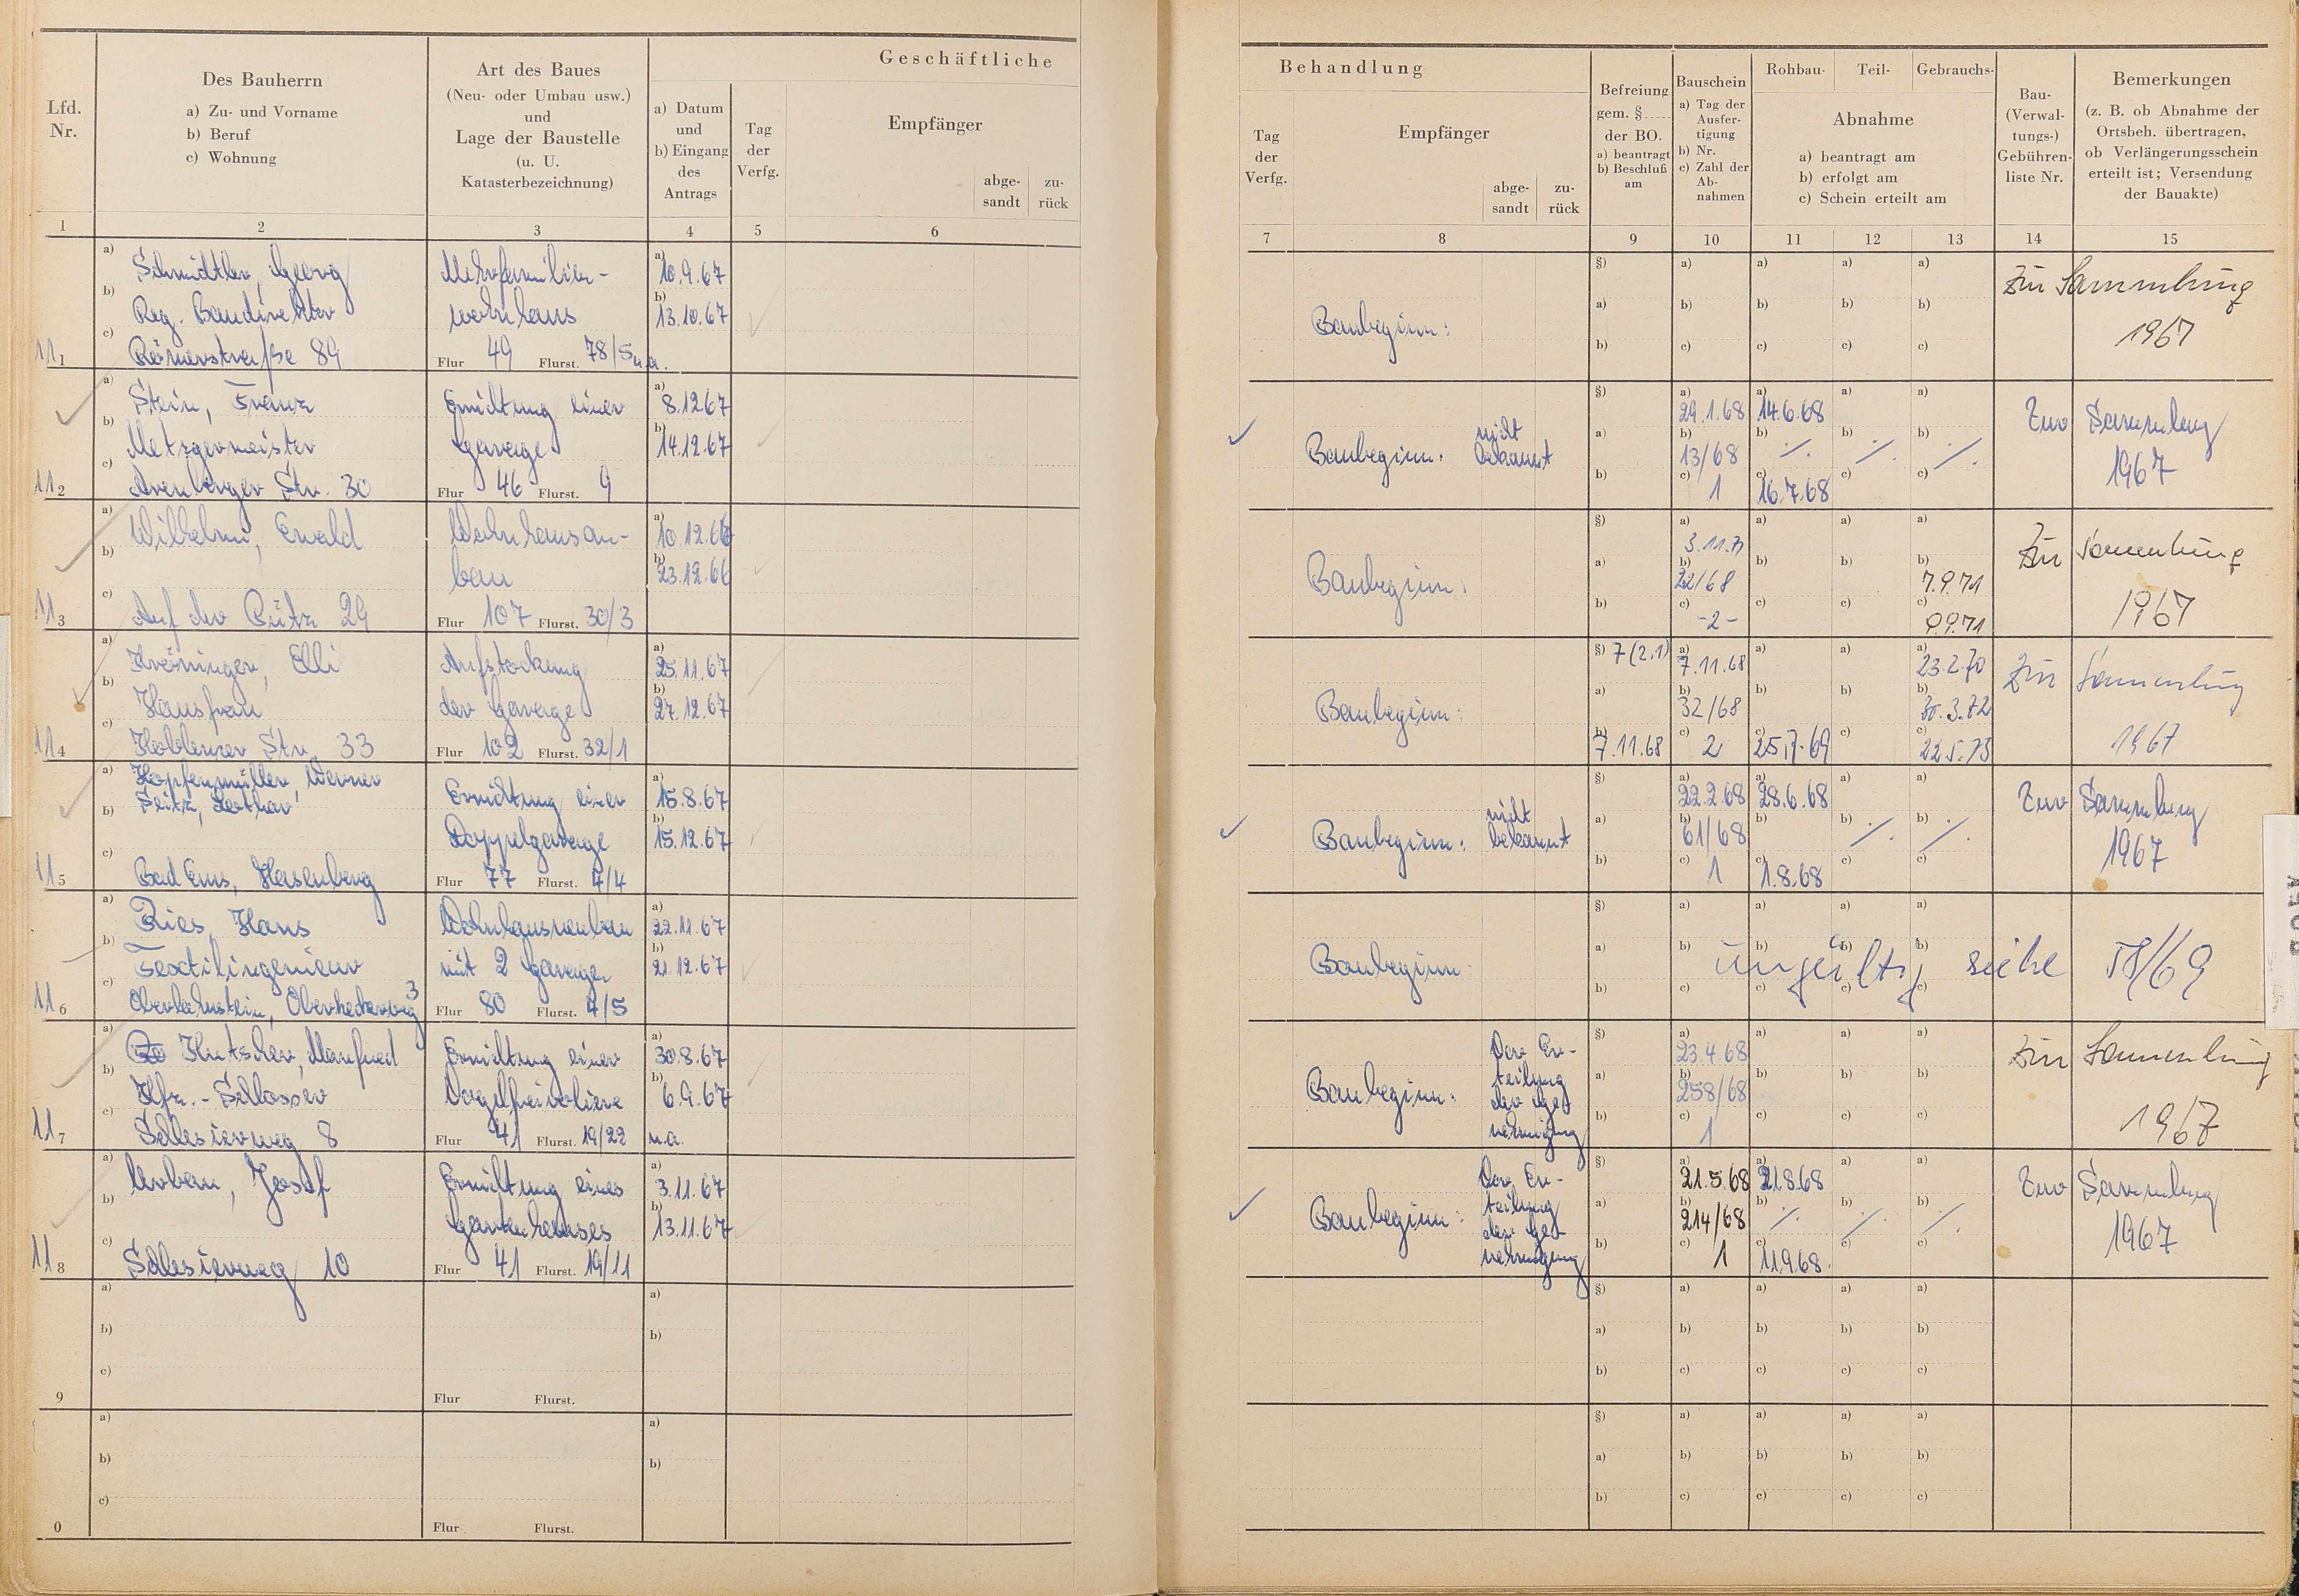 Geschäftliche
Lfd.
Nr.
Des Bauherrn
a) Zu- und Vorname
b) Beruf
c) Wohnung
Art des Baues
(Neu- oder Umbau usw.)
und
Lage der Baustelle
(u. U.
Katasterbezeichnung)
a) Datum
und
b) Eingang
des
Antrags
Tag
der
Verfg.
Empfänger
abge-
sandt
zu-
rück
1 2 3 4 5 6
a) Schmidtler, Georg
b) Reg. Baudirektor
c) Römerstraße 89
11 1
Mehrfamilien-
wohnhaus
Flur 49 Flurst. 78/5 u.a.
a) 10.9.67
b) 13.10.67
a) Stein, Franz
b) Metzgermeister
c) Arenberger Str. 30
11 2
Errichtung einer
Garage
Flur 46 Flurst. 9
a) 8.12.67
b) 14.12.67
a) Wilhelmi, Ewald
b)
c) Auf der Pütz 29
11 3
Wohnhausan-
bau
Flur 107 Flurst. 30/3
a) 10.12.66
b) 23.12.66
a) Kröninger, Elli
b) Hausfrau
c) Koblenzer Str. 33
11 4
Aufstockung
der Garage
Flur 102 Flurst. 32/1
a) 25.11.67
b) 27.12.67
a) Hopfenmüller, Werner
b) Seitz, Lothar
c) Bad Ems, Hasenberg
11 5
Errichtung einer
Doppelgarage
Flur 77 Flurst. 4/4
a) 15.8.67
b) 15.12.67
a) Ries, Hans
b) Textilingenieur
c) Oberlahnstein, Oberheckerweg 3
11 6
Wohnhausneubau
mit 2 Garagen
Flur 80 Flurst. 4/5
a) 22.11.67
b) 21.12.67
a) Kutscher, Manfred
b) Kfz.-Schlosser
c) Schlesierweg 8
11 7
Errichtung einer
Vogelfreivoliere
Flur 41 Flurst. 19/22 u.a.
a) 30.8.67
b) 6.9.67
a) Urban, Josef
b)
c) Schlesierweg 10
11 8
Errichtung eines
Gartenhauses
Flur 41 Flurst. 19/11
a) 3.11.67
b) 13.11.67
a)
b)
c)
9
Flur Flurst.
a)
b)
a)
b)
c)
0
Flur Flurst.
a)
b)
Behandlung
Tag
der
Verfg.
Empfänger
abge-
sandt
zu-
rück
Befreiung
gem. §
der BO.
a) beantragt
b) Beschluß
am
Bauschein
a) Tag der
Ausfer-
tigung
b) Nr.
c) Zahl der
Ab-
nahmen
Rohbau- Teil- Gebrauchs-
Abnahme
a) beantragt am
b) erfolgt am
c) Schein erteilt am
Bau-
(Verwal-
tungs-)
Gebühren-
liste Nr.
Bemerkungen
(z. B. ob Abnahme der
Ortsbeh. übertragen,
ob Verlängerungsschein
erteilt ist; Versendung
der Bauakte)
7 8 9 10 11 12 13 14 15
§) a) a) a) a)
Baubeginn:
a) b) b) b) b)
b) c) c) c) c)
Zur Sammlung
1967
Baubeginn: nicht
bekannt
§) a) 29.1.68 a) 14.6.68 a) a)
a) b) 13/68 b) ·/. b) ·/. b) ·/.
b) c) 1 c) 16.7.68 c) c)
Zur Sammlung
1967
Baubeginn:
§) a) 3.11.71 a) a) a)
a) b) 22/68 b) b) b) 7.9.71
b) c) -2- c) c) c) 9.9.71
Zur Sammlung
1967
Baubeginn:
§) 7(2.1) a) 7.11.68 a) a) a) 23.2.70
a) b) 32/68 b) b) b) 30.3.72
b) 7.11.68 c) 2 c) 25.7.69 c) c) 22.5.73
Zur Sammlung
1967
Baubeginn: nicht
bekannt
§) a) 22.2.68 a) 28.6.68 a) a)
a) b) 61/68 b) b) ·/. b) ·/.
b) c) 1 c) 1.8.68 c) c)
Zur Sammlung
1967
Baubeginn:
§) a) a) a) a)
a) b) b) b) b)
ungültig siehe 58/69
b) c) c) c) c)
Baubeginn: Vor Er-
teilung
der Ge-
nehmigung
§) a) 23.4.68 a) a) a)
a) b) 258/68 b) b) b)
b) c) 1 c) c) c)
Zur Sammlung
1967
Baubeginn: Vor Er-
teilung
der Ge-
nehmigung
§) a) 21.5.68 a) 21.8.68 a) a)
a) b) 214/68 b) ·/. b) ·/. b) ·/.
b) c) 1 c) 11.9.68 c) c)
Zur Sammlung
1967
§) a) a) a) a)
a) b) b) b) b)
b) c) c) c) c)
§) a) a) a) a)
a) b) b) b) b)
b) c) c) c) c)